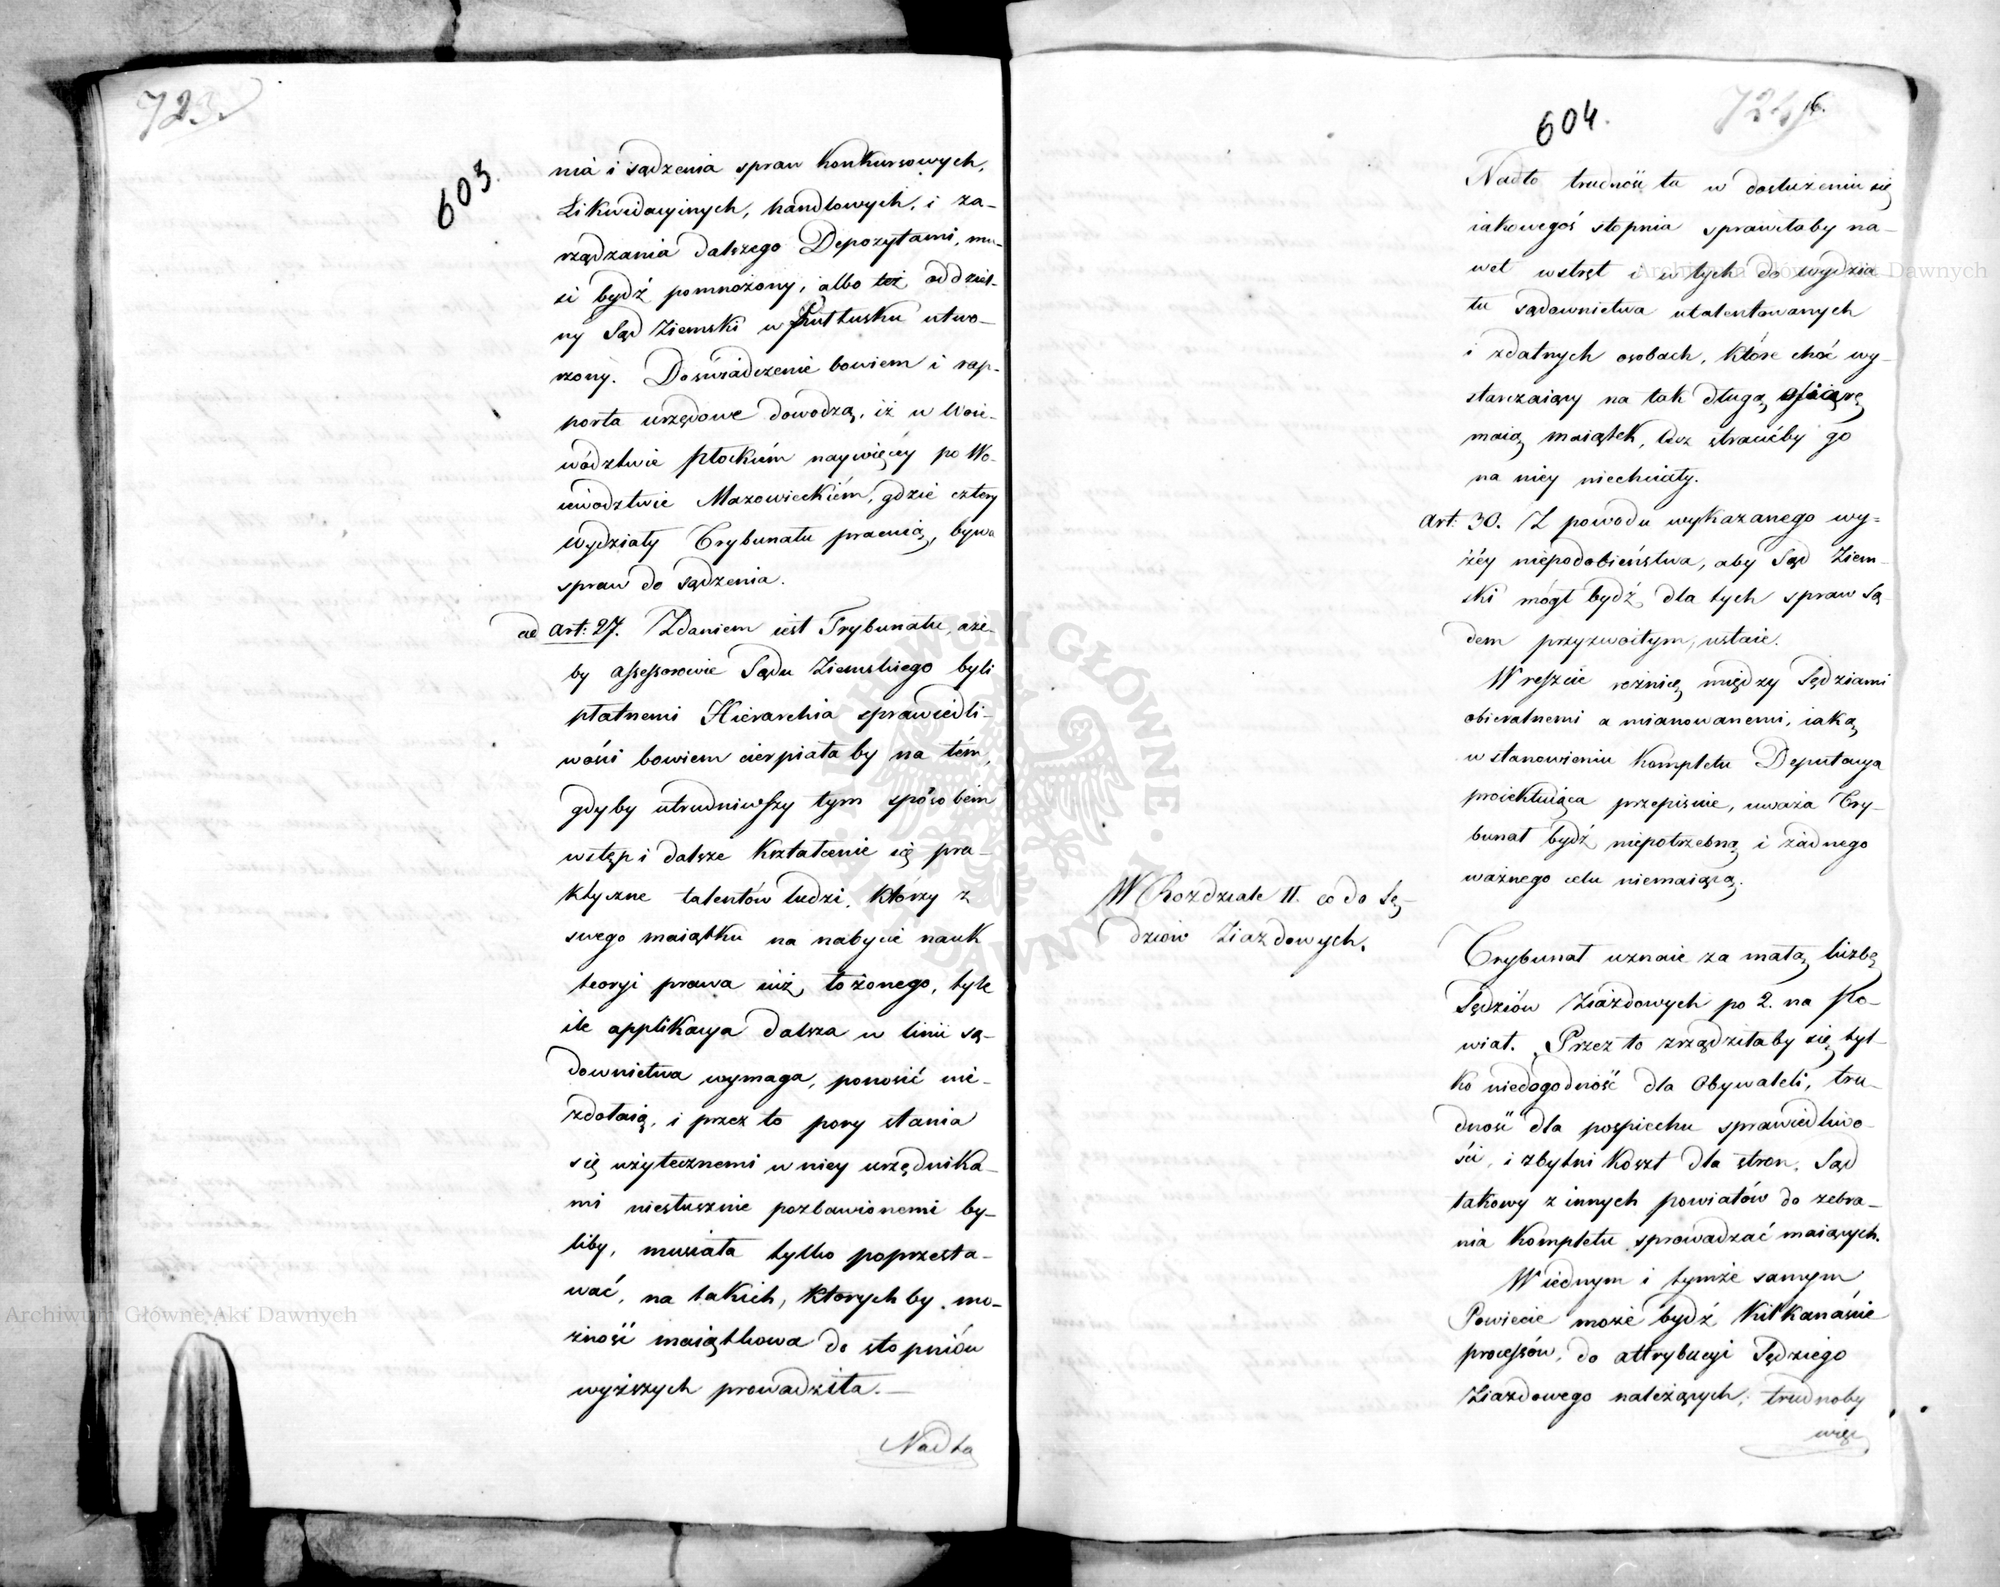 723.
603.
nia i sądzenia spraw konkursowych,
Likwidacyinych, handlowych, i za-
rządzania dalszego Depozytami, mu-
si bydź pomnożony, albo też oddziel-
ny Sąd Ziemski w Pułtusku utwo-
rzony. Doświadczenie bowiem i rap-
porta urzędowe dowodzą, iż w Woie-
wództwie Płockiém naywięcéy po Wo-
iewództwie Mazowieckiém, gdzie cztery
wydziały Trybunału pracuią, bywa
spraw do sądzenia.
ad Art: 27. Zdaniem iest Trybunału, aże-
by assessorowie Sądu Ziemskiego byli
płatnemi Hierarchia sprawiedli-
wości bowiem cierpiałaby na tém,
gdyby utrudniwszy tym sposobem
wstęp i dalsze kształcenie się pra-
ktyczne talentów ludzi, którzy z
swego maiątku na nabycie nauk
teoryi prawa iuż łożonego, tyle
ile applikacya dalsza w linii są-
downictwa wymaga, ponosić nie-
zdołaią, i przez to pory stania
się użytecznemi w niey urzędnika-
mi niesłusznie pozbawionemi by-
liby, musiała tylko poprzesta-
wać, na takich, którychby mo-
żność maiątkowa do stopniów
wyższych prowadziła.—
Nadto
604.
724
16.
Nadto trudność ta w dosłużeniu się
iakowegoś stopnia sprawiłaby na-
wet wstręt i w tych do wydzia
łu sądownictwa utalentowanych
i zdatnych osobach, które choć wy-
starczaiący na tak długą ofiarę
maią maiątek, lecz stracićby go
na niey niechciały.
Art: 30. Z powodu wykazanego wy-
żéy niepodobieństwa, aby Sąd Ziem-
ski mógł bydź dla tych spraw Są-
dem przyzwoitym, ustaie.
Wreszcie roznicę między Sędziami
obieralnemi a mianowanemi, iaką
w stanowieniu kompletu Deputacya
proiektuiąca przepisuie, uważa Try-
bunał bydź niepotrzebną i żadnego
ważnego celu niemaiącą.
W Rozdziale II. co do Sę-
dziow Ziazdowych.
Trybunał uznaie za małą liczbę
Sędziów Ziazdowych po 2. na Po-
wiat. Przez to zrządziłaby się tyl-
ko niedogodność dla Obywateli, tru-
dność dla pospiechu sprawiedliwo-
ści, i zbytni koszt dla stron, Sąd
takowy z innych powiatów do zebra-
nia kompletu sprowadzać maiących.
W iednym i tymże samym
Powiecie może bydź kilkanaście
processów, do attrybucyi Sędziego
Ziazdowego należących; trudnoby
więc
Archiwum Główne Akt Dawnych
Archiwum Główne Akt Dawnych
ARCHIWUM GŁÓWNE AKT DAWNYCH